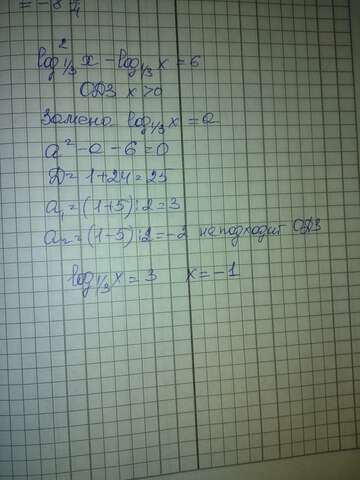 = -8 1/4
log²₁/₃ x - log₁/₃ x = 6
ОДЗ x > 0
Замена log₁/₃ x = a
a² - a - 6 = 0
D = 1 + 24 = 25
a₁ = (1+5) : 2 = 3
a₂ = (1-5) : 2 = -2 не подходит ОДЗ
log₁/₃ x = 3 x = -1